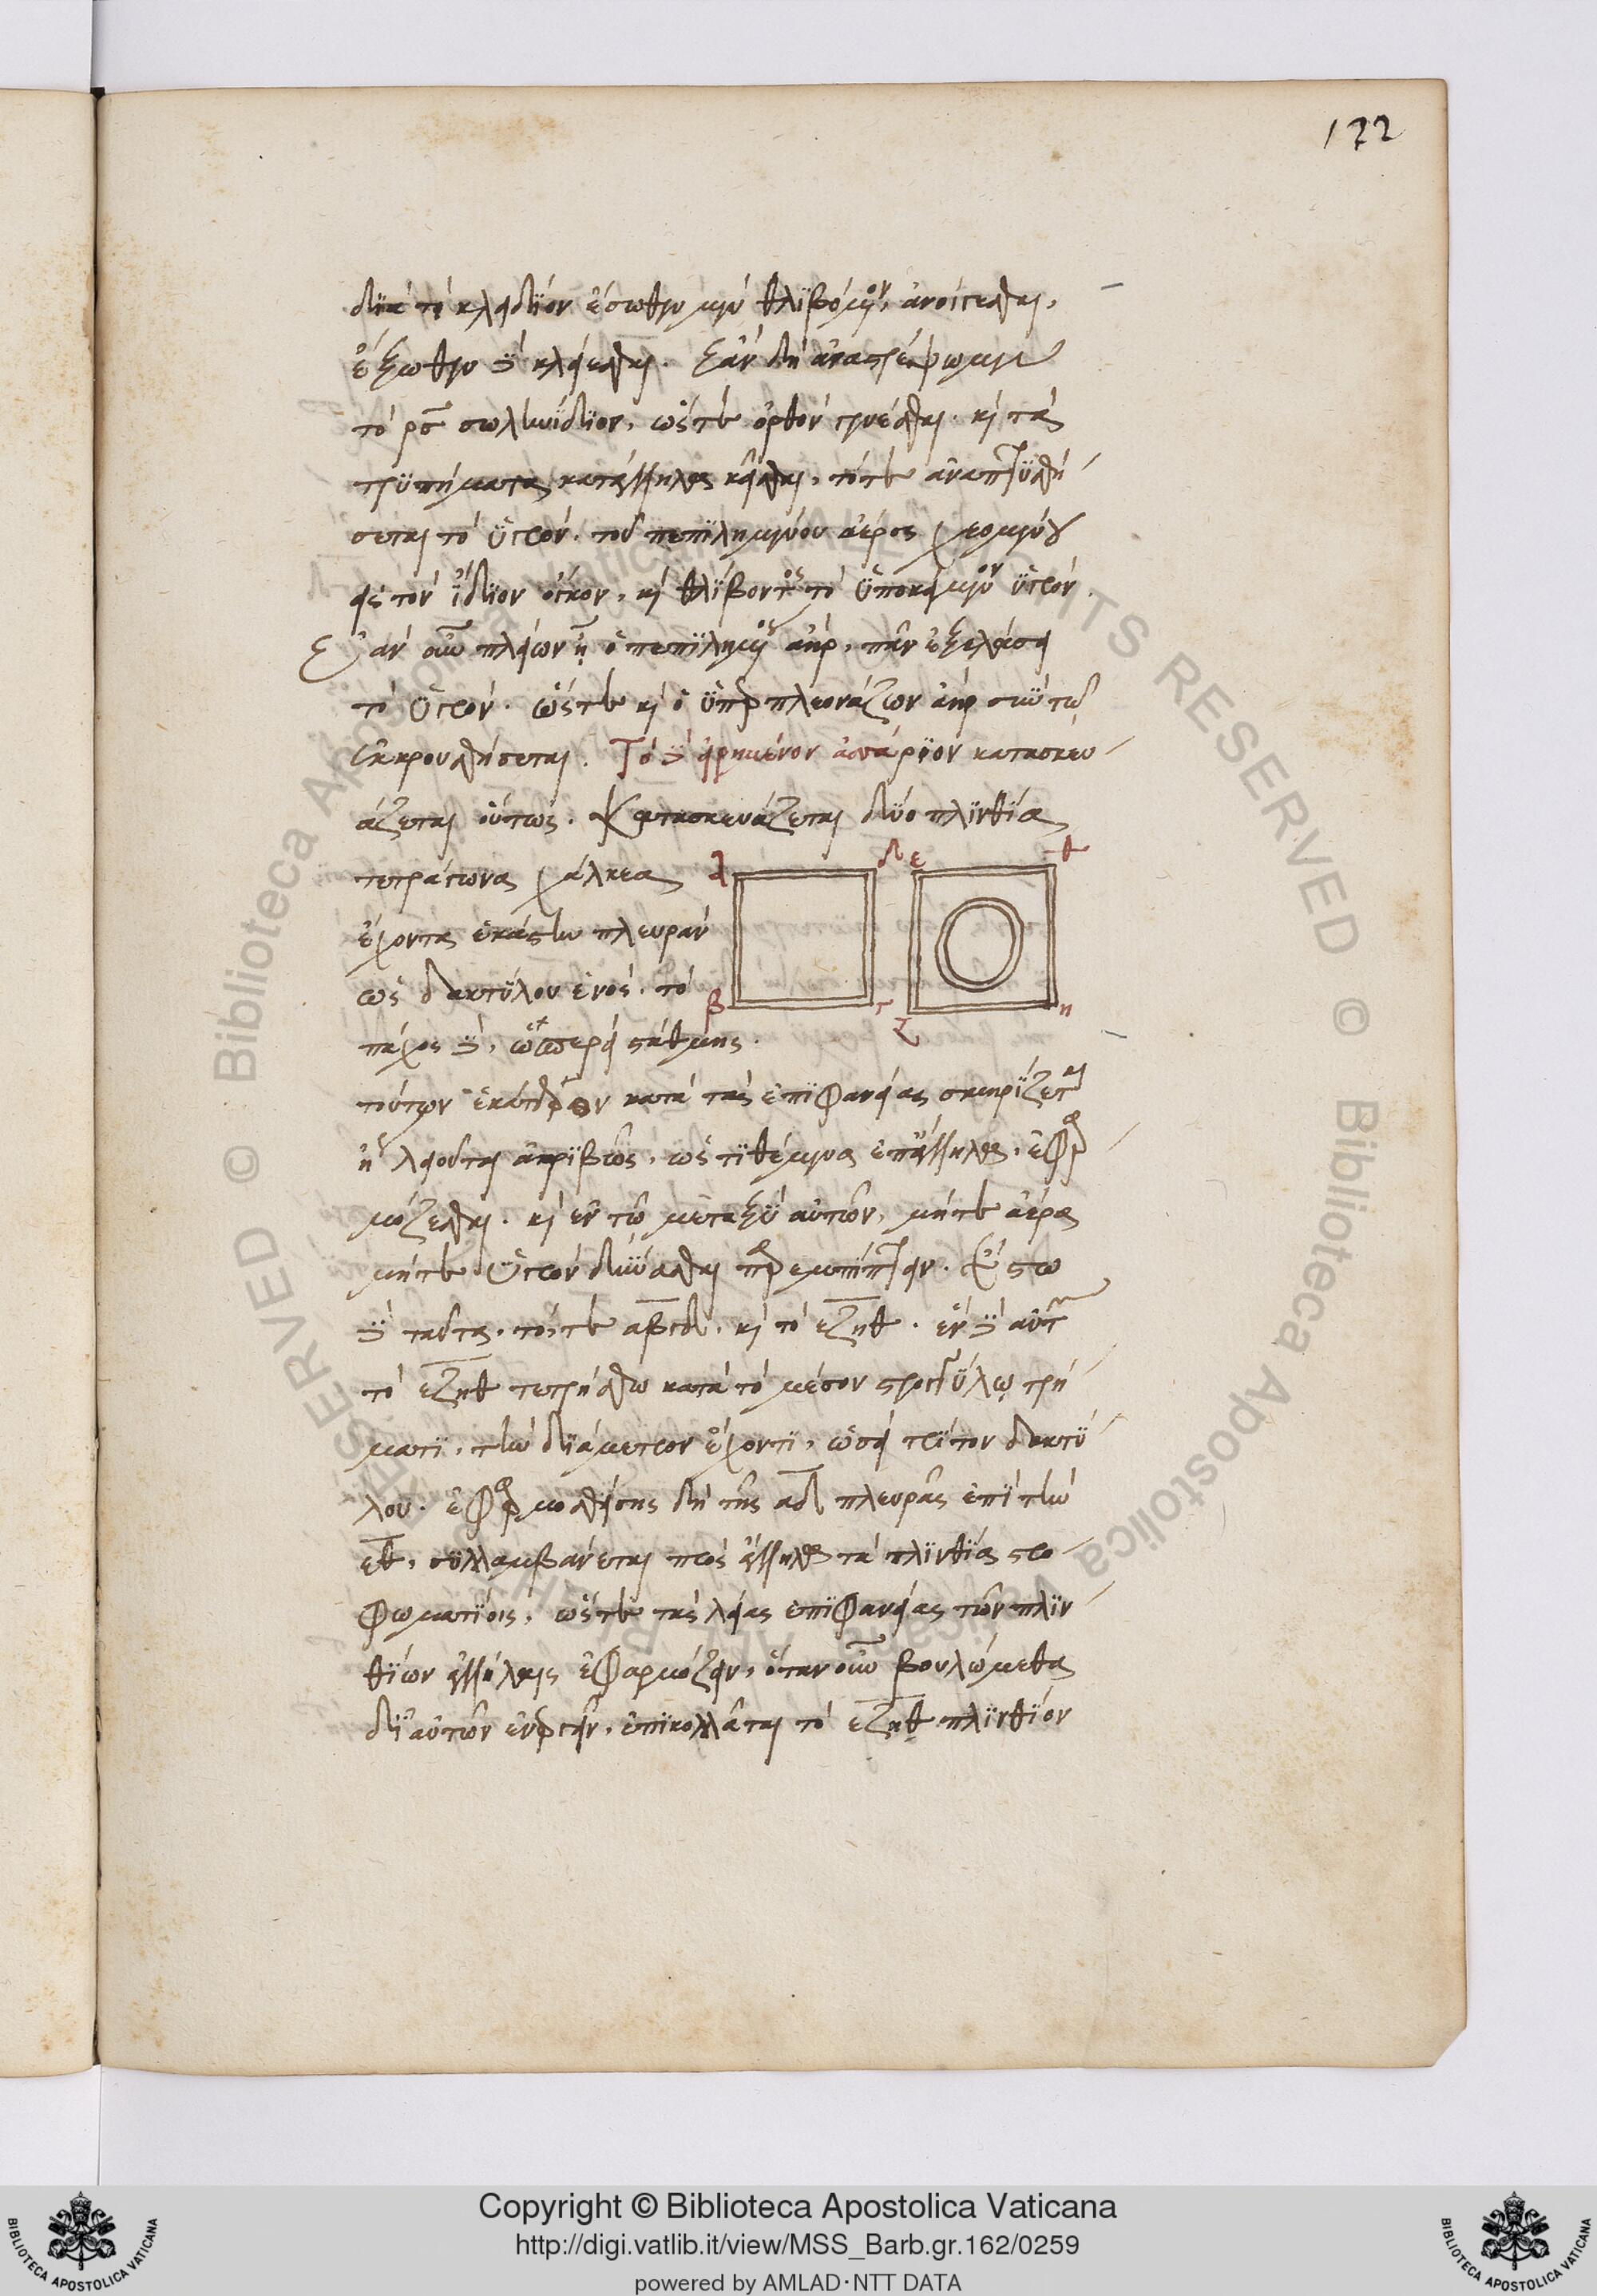 172
διὰ τὸ κλειδίον ἔσωθεν μὲν θλιβόμενον, ἀνοίγεσθαι,
ἔξωθεν δὲ κλείεσθαι. ἐὰν δὴ ἀναστρέψωμεν
τὸ ρς σωληνίδιον, ὥστε ὀρθὸν γενέσθαι. καὶ τὰ
τρυπήματα κατάλληλα κεῖσθαι, τότε ἀναπτυσθή
σεται τὸ ὑγρὸν. τοῦ πεπιλημένου ἀέρος χεομένου
εἰς τὸν ἴδιον ὄγκον, καὶ θλίβοντος τὸ ὑποκείμενον ὑγρόν.
Ἐὰν οὖν πλείων ᾖ ὁ πεπιλημένος ἀὴρ, πᾶν ἐξελάσει
τὸ ὑγρόν. ὥστε καὶ ὁ ὑπερπλεονάζων ἀὴρ σὺν τῷ
ἐκκρουσθήσεται. Τὸ δὲ εἰρημένον ἀσσάριον κατασκευ
άζεται οὕτως. Κατασκευάζεται δύο πλινθία
τετράγωνα χάλκεα
ἔχοντα ἑκάστην πλευρὰν
ὡς δακτύλου ἑνός. τὸ
πάχος δὲ, ὡσπερεὶ στάθμης.
α δ ε θ
β γ ζ η
τούτων ἑκάτερον κατὰ τὰς ἐπιφανείας σμηρίζεται
ἢ λειοῦται ἀκριβῶς, ὡς τιθέμενα ἐπάλληλα, ἐφαρ
μόζεσθαι. καὶ ἐν τῷ μεταξὺ αὐτῶν, μήτε ἀέρα
μήτε ὑγρὸν δύνασθαι παρεμπίπτειν. Ἔστω
δὲ ταῦτα, τό, τε αβγδ. καὶ τὸ εζηθ. ἓν δὲ αὐτῶν
τὸ εζηθ τετρήσθω κατὰ τὸ μέσον στρογγύλῳ τρή
ματι, τὴν διάμετρον ἔχοντι, ὡσεὶ τρίτον δακτύ
λου. ἐφαρμοσθείσης δὴ τῆς αδ πλευρᾶς ἐπὶ τὴν
εθ, συλλαμβάνεται πρὸς ἄλληλα τὰ πλινθία στρο
φωματίοις, ὥστε τὰς λείας ἐπιφανείας τῶν πλιν
θίων ἀλλήλαις ἐφαρμόζειν, ὅταν οὖν βουλώμεθα
δι' αὐτῶν ἐνεργεῖν, ἐπικολλᾶται τὸ εζηθ πλινθίον
Copyright © Biblioteca Apostolica Vaticana
http://digi.vatlib.it/view/MSS_Barb.gr.162/0259
powered by AMLAD·NTT DATA